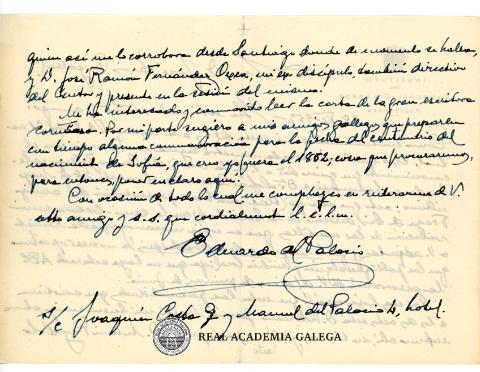 quien así me lo corrobora desde Santiago donde de momento se halla,
y D. José Ramón Fernández Oxea, mi ex-discípulo, también directivo
del Centro y presente en la sesión del mismo.
Me ha interesado y conmovido leer la carta de la gran escritora
coruñesa. Por mi parte sugiero a mis amigos gallegos que preparen
con tiempo alguna conmemoración para la fecha del centenario del
nacimiento de Sofía, que creo yo fuera el 1852; cosa que procuraremos,
para entonces, poner en claro aquí.
Con ocasión de todo lo cual me complazco en reiterarme de V.
atto amigo y s.s. que cordialmente l. e. l. m.
Eduardo del Palacio
s/c Joaquín Costa y Manuel del Palacio 4, hotel.
REAL ACADEMIA GALEGA